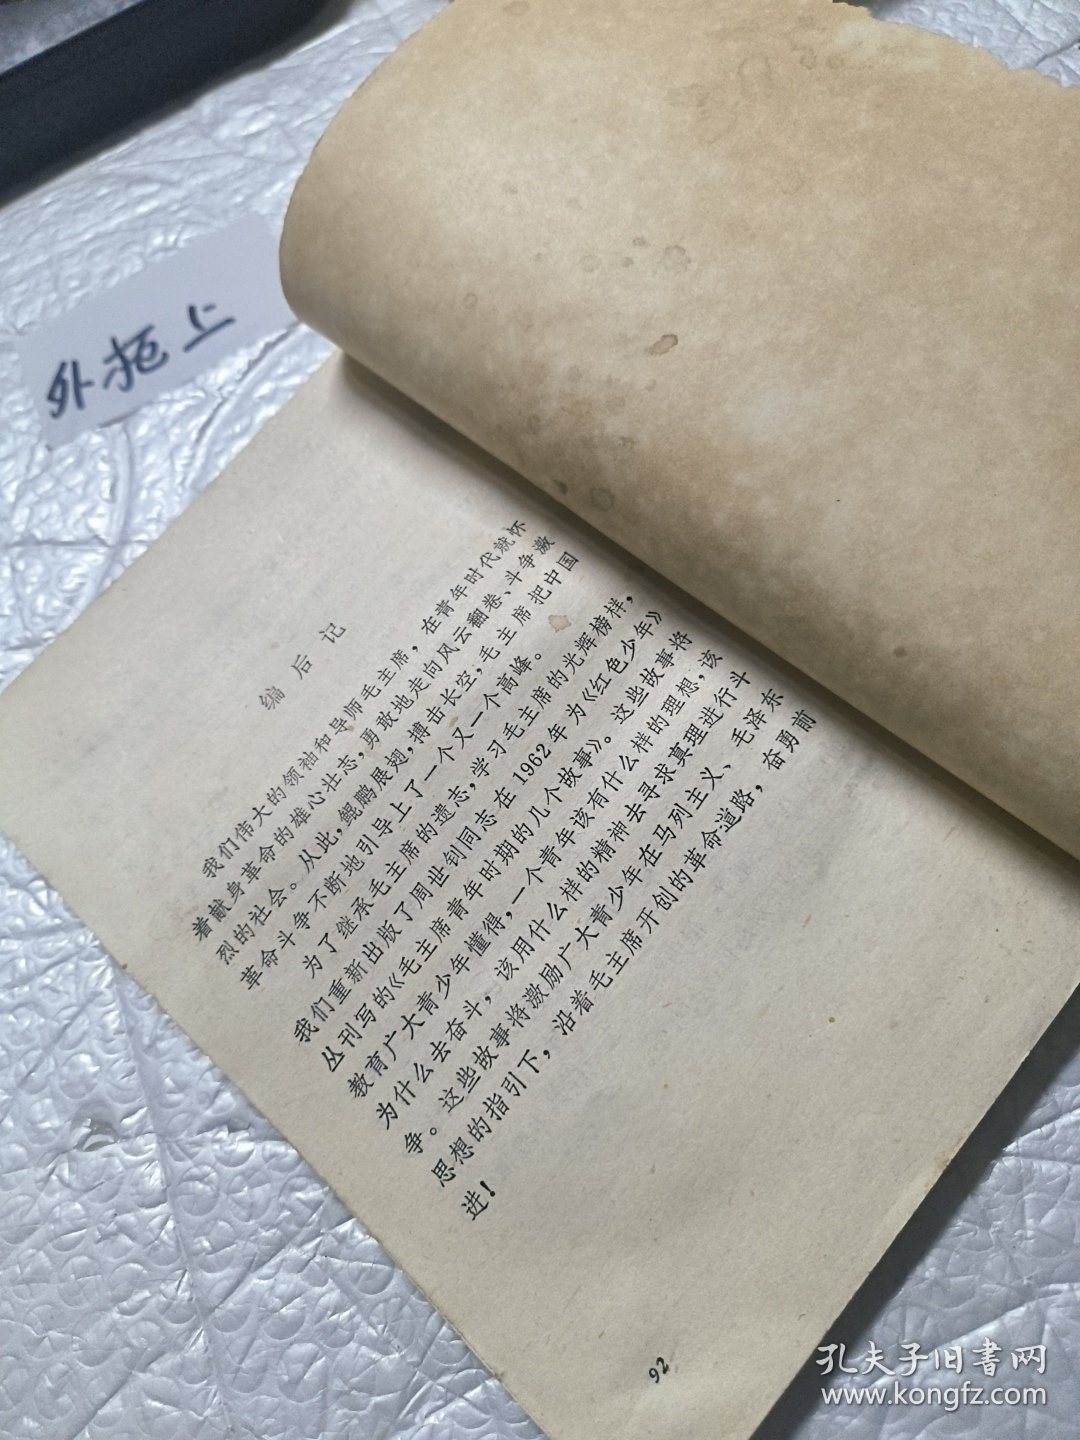 外拖上
编后记
我们伟大的领袖和导师毛主席，在青年时代就怀
着献身革命的雄心壮志，勇敢地走向风云翻卷、斗争激
烈的社会。从此，鲲鹏展翅，搏击长空，毛主席把中国
革命斗争不断地引导上了一个又一个高峰。
为了继承毛主席的遗志，学习毛主席的光辉榜样，
我们重新出版了周世钊同志在1962年为《红色少年》
丛刊写的《毛主席青年时期的几个故事》。这些故事将
教育广大青少年懂得，一个青年该有什么样的理想，该
为什么去奋斗，该用什么样的精神去寻求真理进行斗
争。这些故事将激励广大青少年在马列主义、毛泽东
思想的指引下，沿着毛主席开创的革命道路，奋勇前
进！
92
孔夫子旧书网
www.kongfz.com